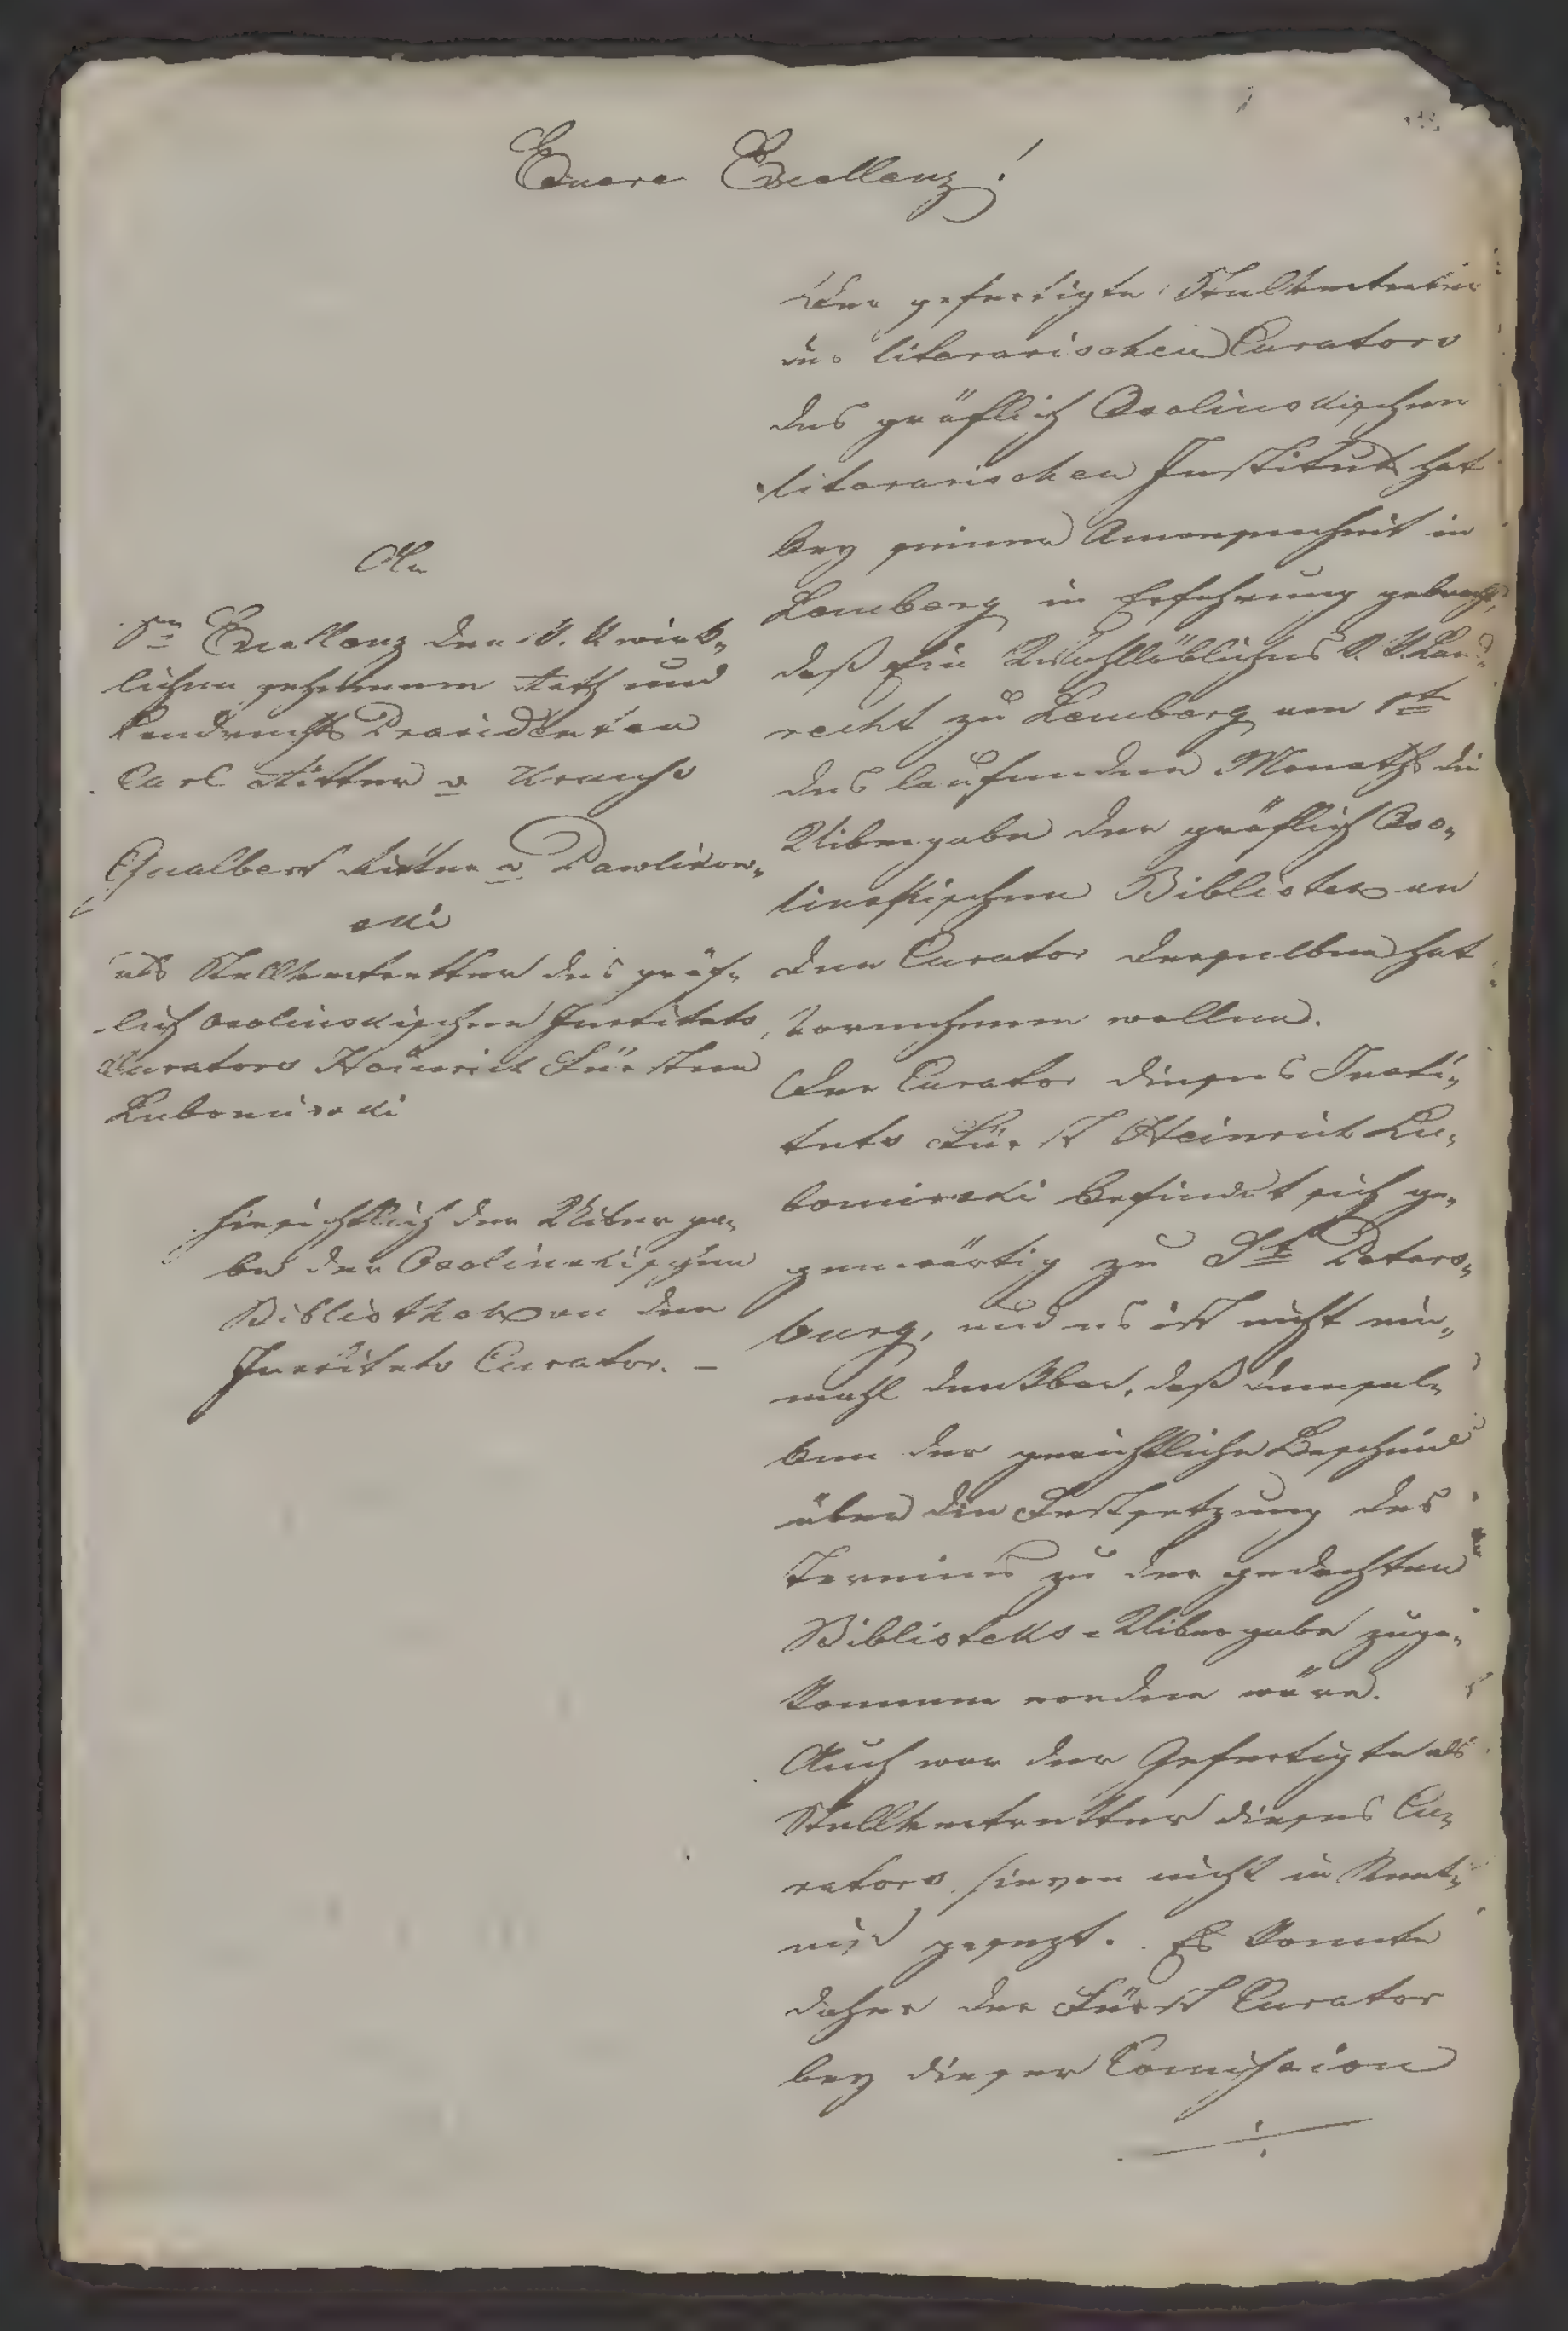 Euere Excellenz!
An
Sr Excellenz den K. K wirk„
lichen geheimen Rath und
Landrechts Praesidenten
Carl Ritter v Krauss
Gualbert Ritter v Pawlikow„
ski
als Stellvertretter des gräf„
lich Ossolinskischen Instituts
Curators Heinrich Fürsten
Lubomirski
hinsichtlich der Uiberga„
be der Ossolinskischen
Bibliothek an den
Instituts Curator. –
Der gefertigte Stellvertreter
des literarischen Curators
des gräflich Ossolinskischen
literarischen Institut hat
bey seiner Anwesenheit in
Lemberg in Erfahrung gebracht,
daß Ein Hochlöbliches K. K. Land„
recht zu Lemberg am 1t
des laufenden Monaths die
Uibergabe der gräflich Osso„
linskischen Bibliotek an
den Curator derselben hat
vornehmen wollen.
Der Curator dieses Insti„
tuts Fürst Heinrich Lu„
bomirski befindet sich ge„
genwärtig zu St Peters„
burg, und es ist nicht ein„
mahl denkbar, daß demsel„
ben der gerichtliche Bescheid
über die Festsetzung des
Termins zu der gedachten
Biblioteks-Uibergabe zuge„
kommen worden wäre.
Auch war der Gefertigte als
Stellvertretter dieses Cu„
rators hievon nicht in Kent„
niß gesezt. Es konnte
daher der Fürst Curator
bey dieser Comission